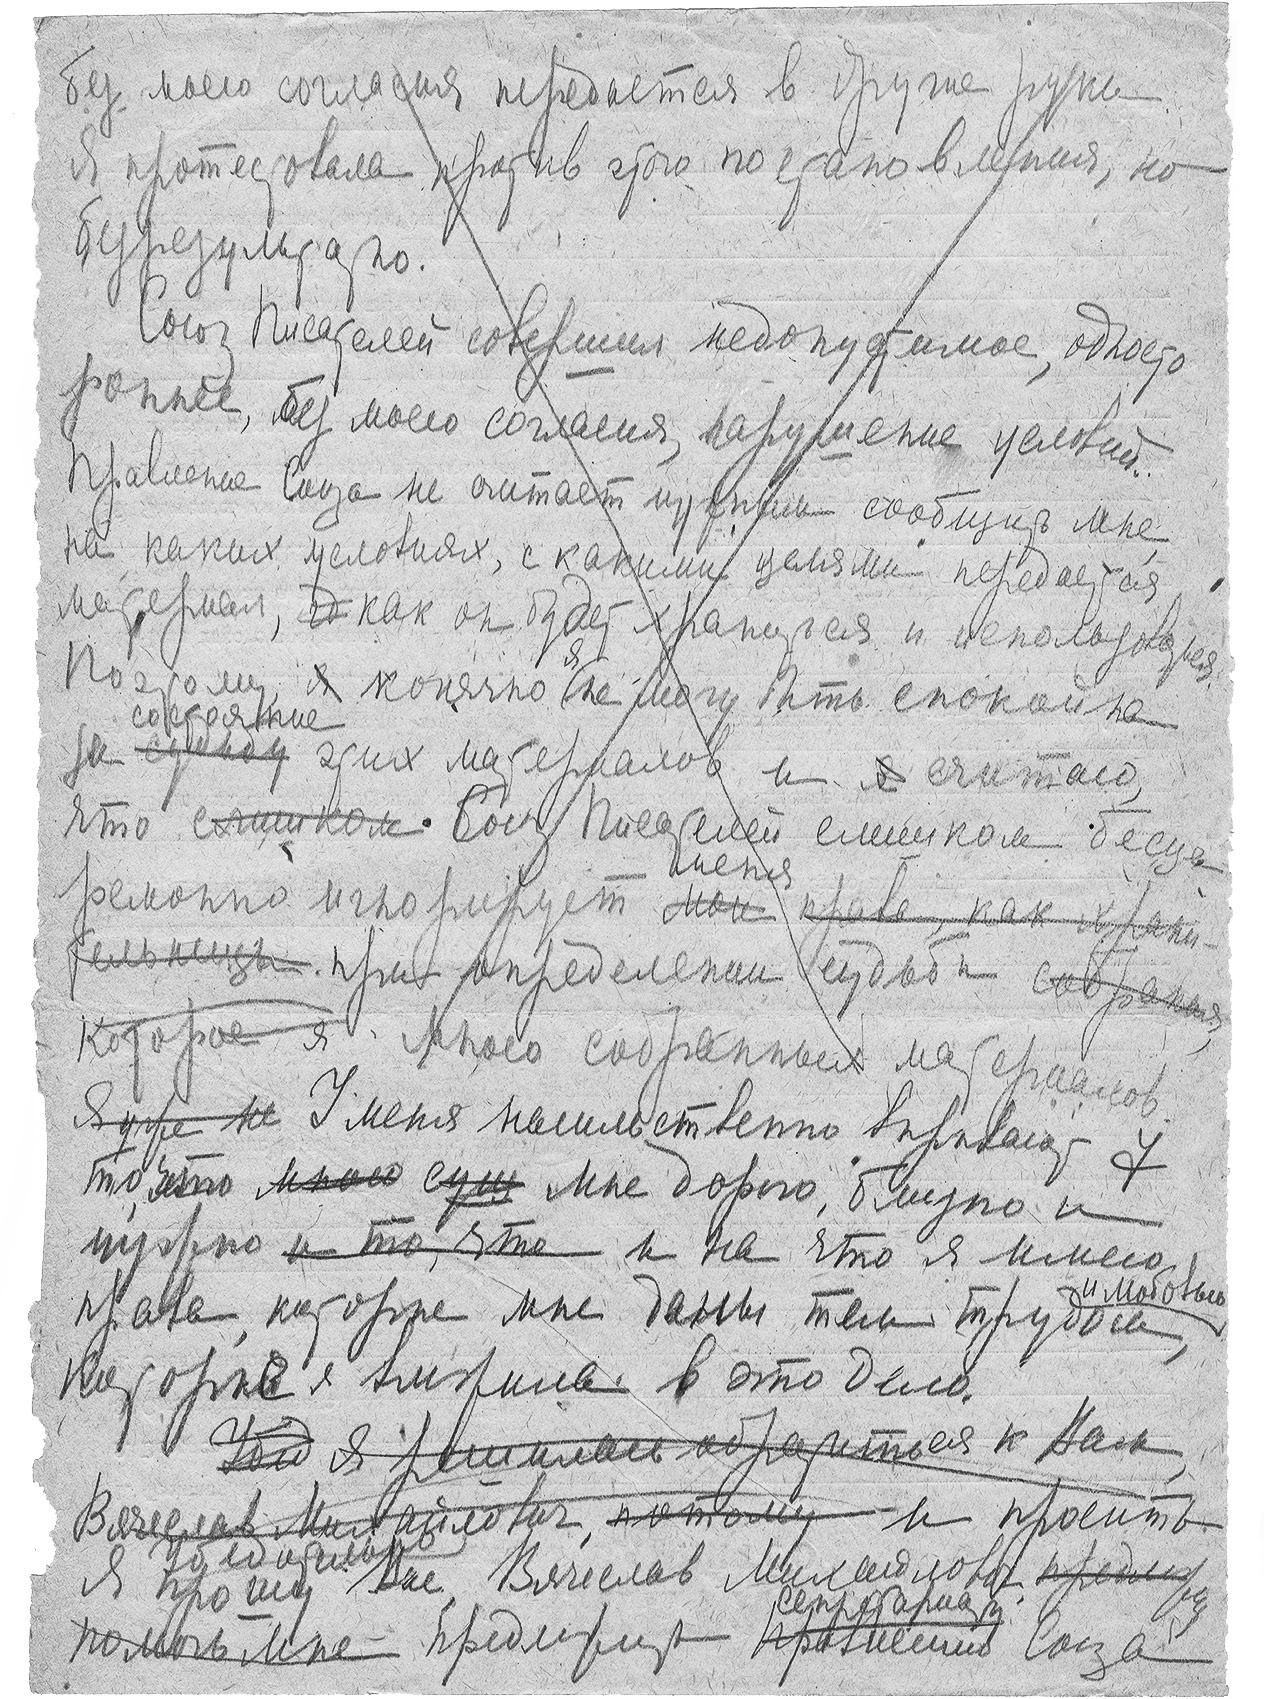 без моего согласия передается в другие руки
Я протестовала против этого постановления, но
безрезультатно.
Союз Писателей совершил недопустимое, односто
роннее, без моего согласия, нарушение условий.
Правление Союза не считает нужным сообщить мне,
на каких условиях, с какими целями передается
материал, как он будет храниться и использоваться.
Поэтому, я конечно я не могу быть спокойна
состояние
за судьбу этих материалов и я считаю,
что слишком Союз Писателей слишком бесце
ремонно игнорирует мои права, как храни-
меня
тельницы при определении судьбы собрания,
которое я мною собранных материалов.
Я уже не У меня насильственно вырывают
то, что мною сущ мне дорого, близко и
нужно и то, что и на что я имею
права, которые мне даны тем трудом,
и любовью
которые я вложила в это дело.
Я решилась обратиться к Вам,
Вячеслав Михайлович, потому и просить
убедительно
Я прошу Вас, Вячеслав Михайлович,
секретариату
помочь мне предложить Правлению Союза